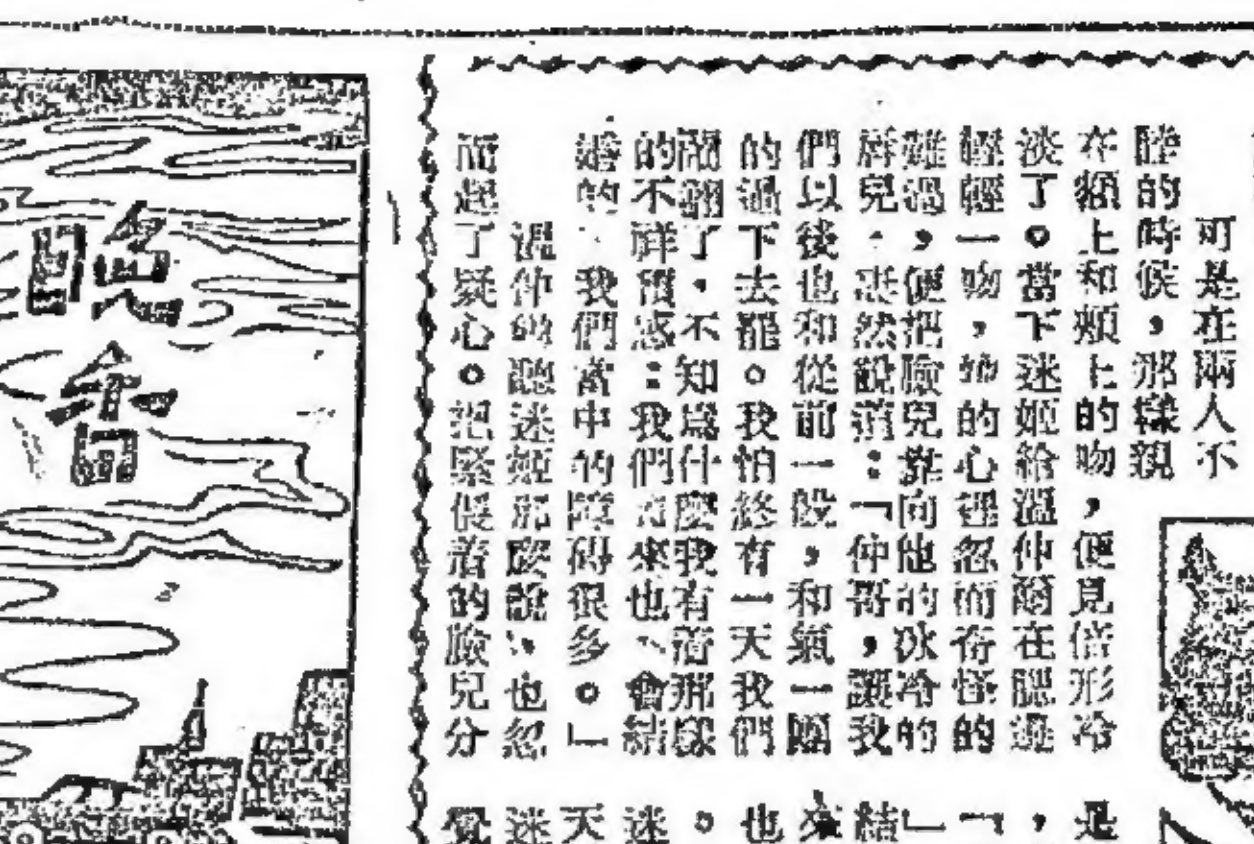 可是在兩人不
睦的時候，那樣親
在額上和頰上的吻，便見倍形冷
淡了。當下迷姬給溫仲爾在腮邊
輕輕一吻，她的心裡忽而奇怪的
難過，便把臉兒靠向他的冰冷的
唇兒，然說道：「仲哥，讓我
們以後也和從前一般，和氣一團
的過下去罷。我怕終有一天我們
鬧翻了，不知爲什麼我有着那樣
的不祥預感：我們來也會結
婚的．我們當中的障碍很多。」
溫仲聽迷姬那麼說，也忽
而起了疑心。把緊偎着的臉兒分
是
，
「
」
結
也
。
迷
天
迷
覺